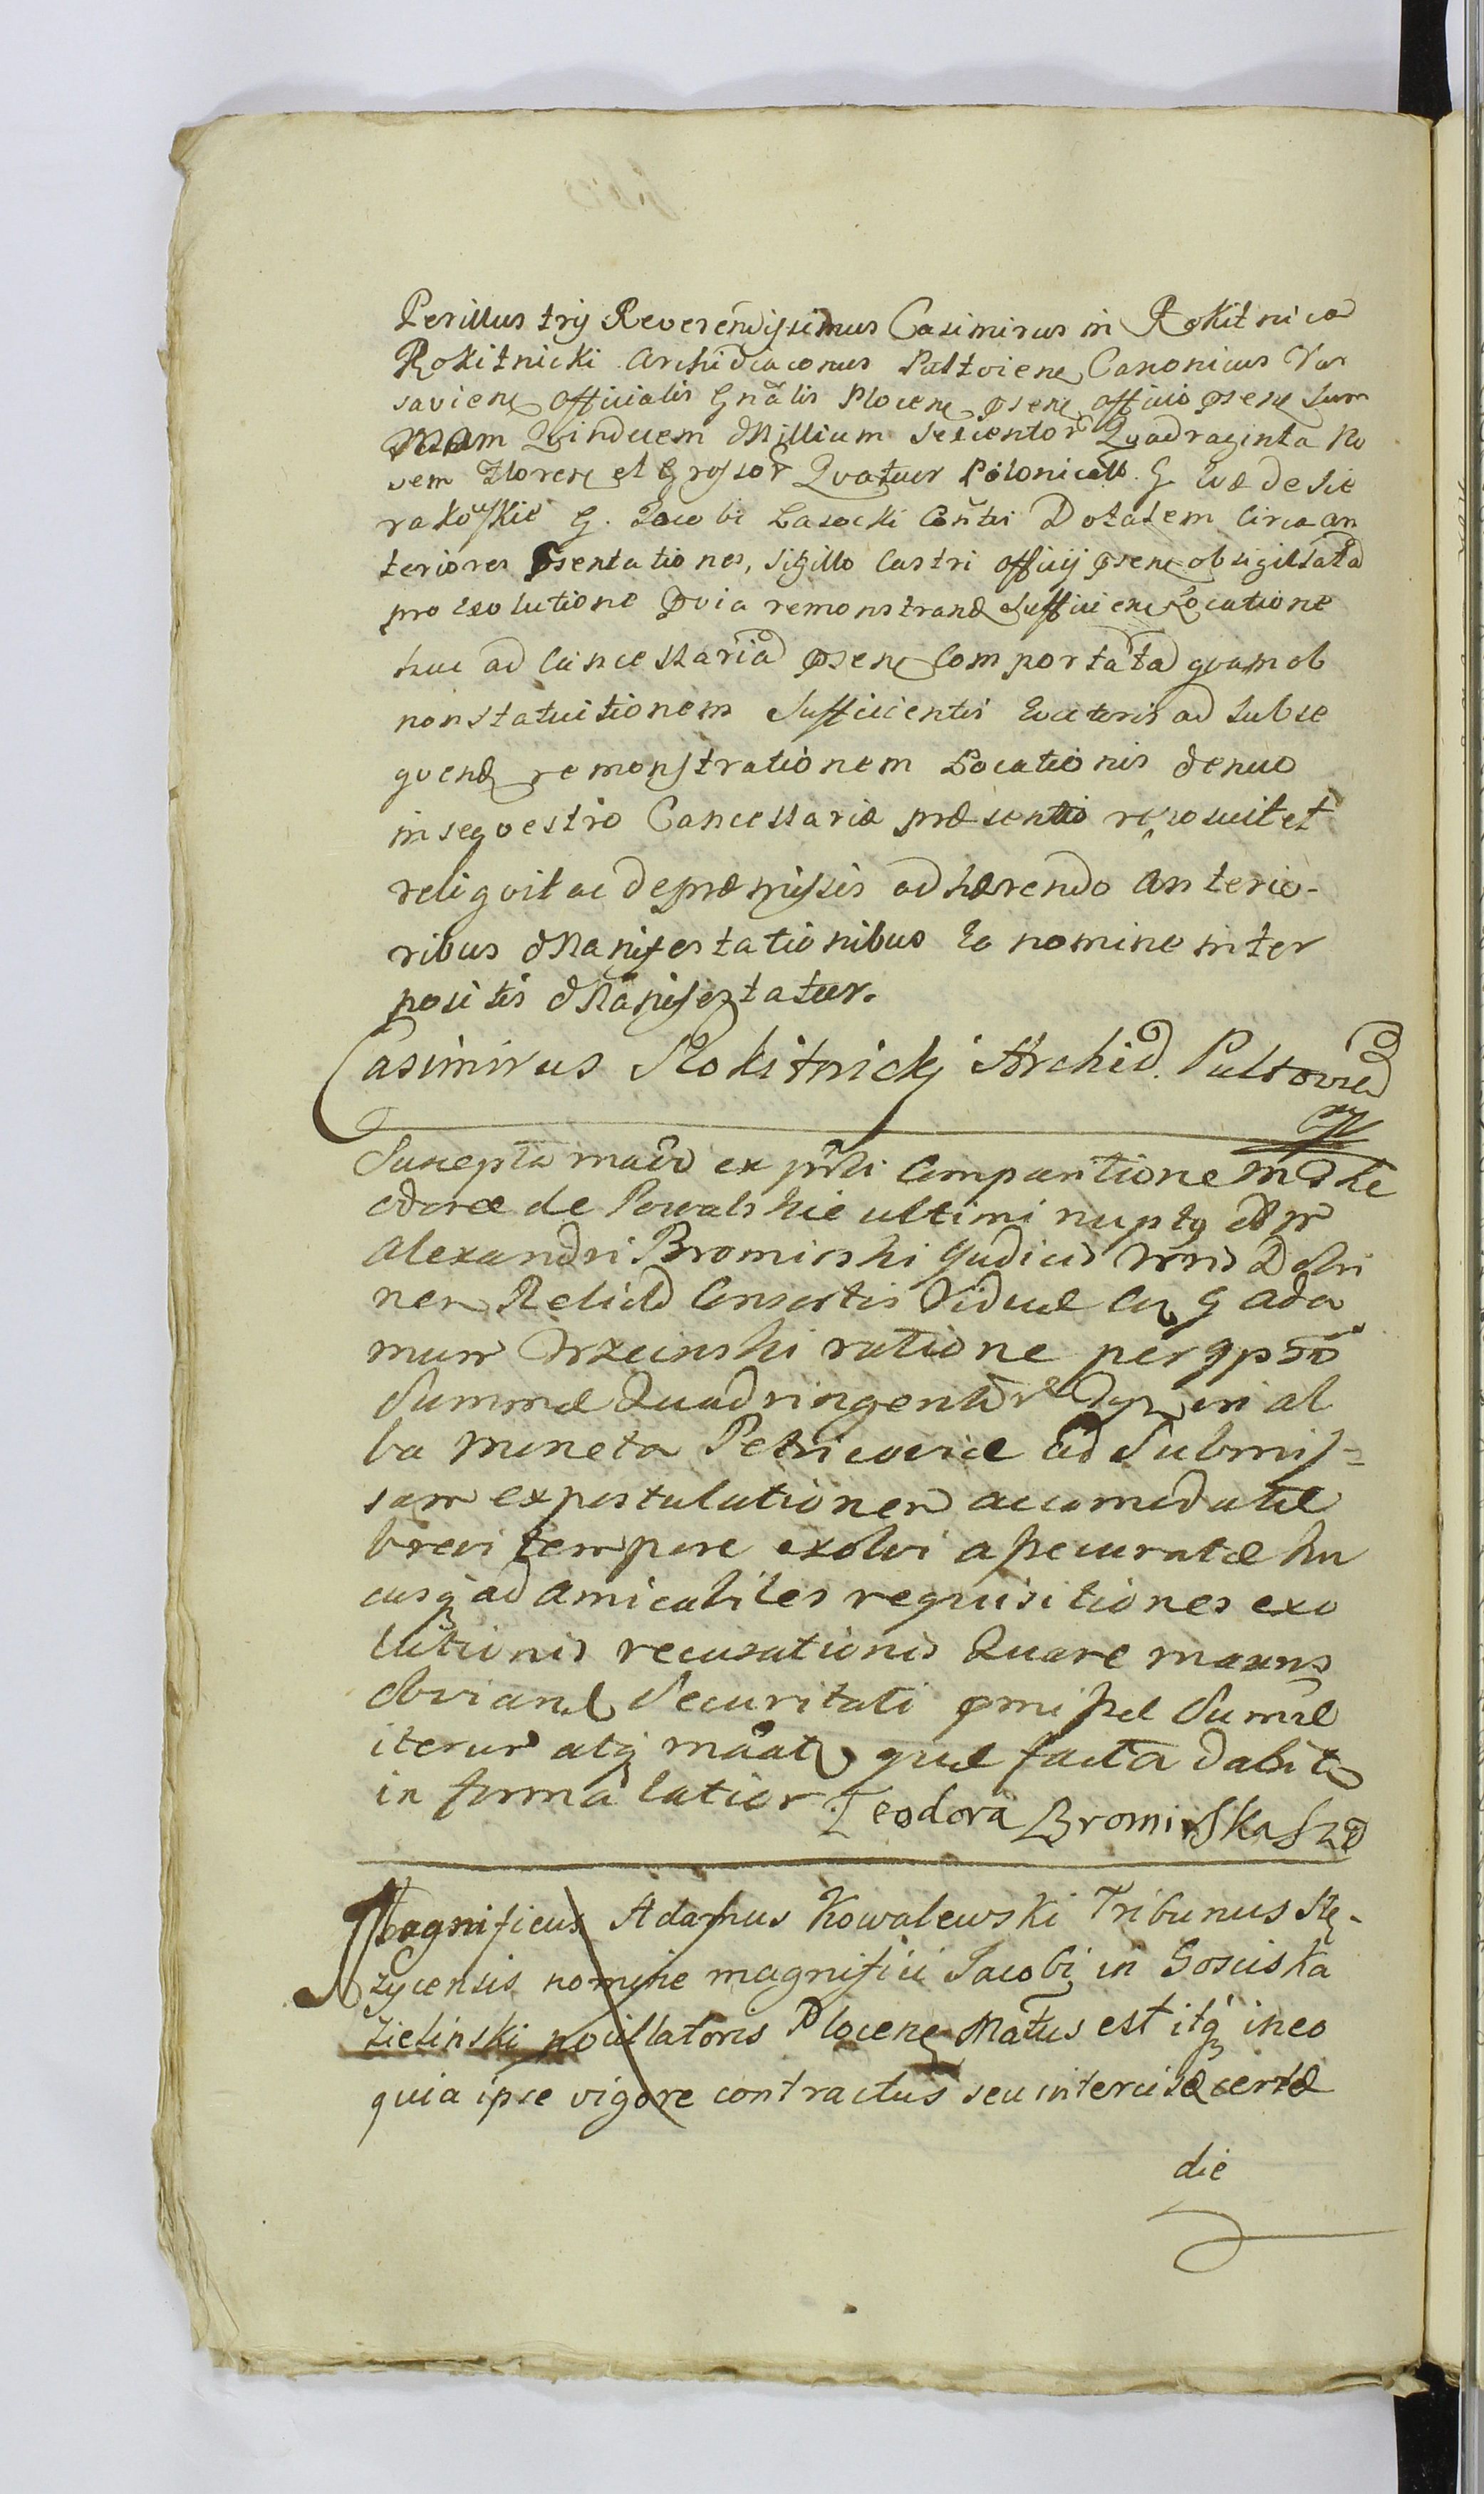 Perillustris Reverendissimus Casimirus in Rokitnica
Rokitnicki Archidiaconus Pultoviens Canonicus Var
saviens Officialis Gnãlis Plocens psens officio psens Sum
mam Quindecem Millium Sexcentor Quadraginta No
vem Floren et Grossor Quatuor Polonicall G. Evæ de Sie
rakowskie G. Jacobi Lasocki Contis Dotalem Circa an
teriores psentationes, Sigillo Castri officij psens obsigillatã
pro exolutione pvia remonstrand sufficien Locatione
huc ad Cancellariã psens Comportatã qvam ob
non statuitionem Sufficientis Evictoris ad subse
qvend remonstrationem Locationis denuo
in seqvestro Cancellariæ præsentis reposuit et
reliqvit ac de præmissis adhærendo Anterio-
ribus Manifestationibus Eo nomine inter
positis Manifestatur.
Casimirus Rokitnicki Archid. Pultovien
Suscepta ex pñti Comparitione M The
odoræ de Powalskie ultimi nuptus M
Alexandri Bromirski Judicis Dobri
nen Relictæ Consortis Viduæ G Ada
mum Trzcinski ratione per
Summæ Quadringentor in al
ba moneta Petricoviæ ad Submis=
sam expostulationem accomodatæ
brevi tempore exolvi apecuratæ hu
cusq ad amicabiles requisitiones exo
lutionis recusationis Quare
obviand Securitati pmissæ Sumæ
iterum atq quæ facta dabit
in forma latior. Teodora Bromirska
Magnificus Adamus Kowalewski Tribunus Stę-
zycensis nomine magnifici Jacobi in Gosciska
Zielinski pocillatoris Plocens Matus est itq ineo
quia ipse vigore contractus seu intercisæ certæ
die